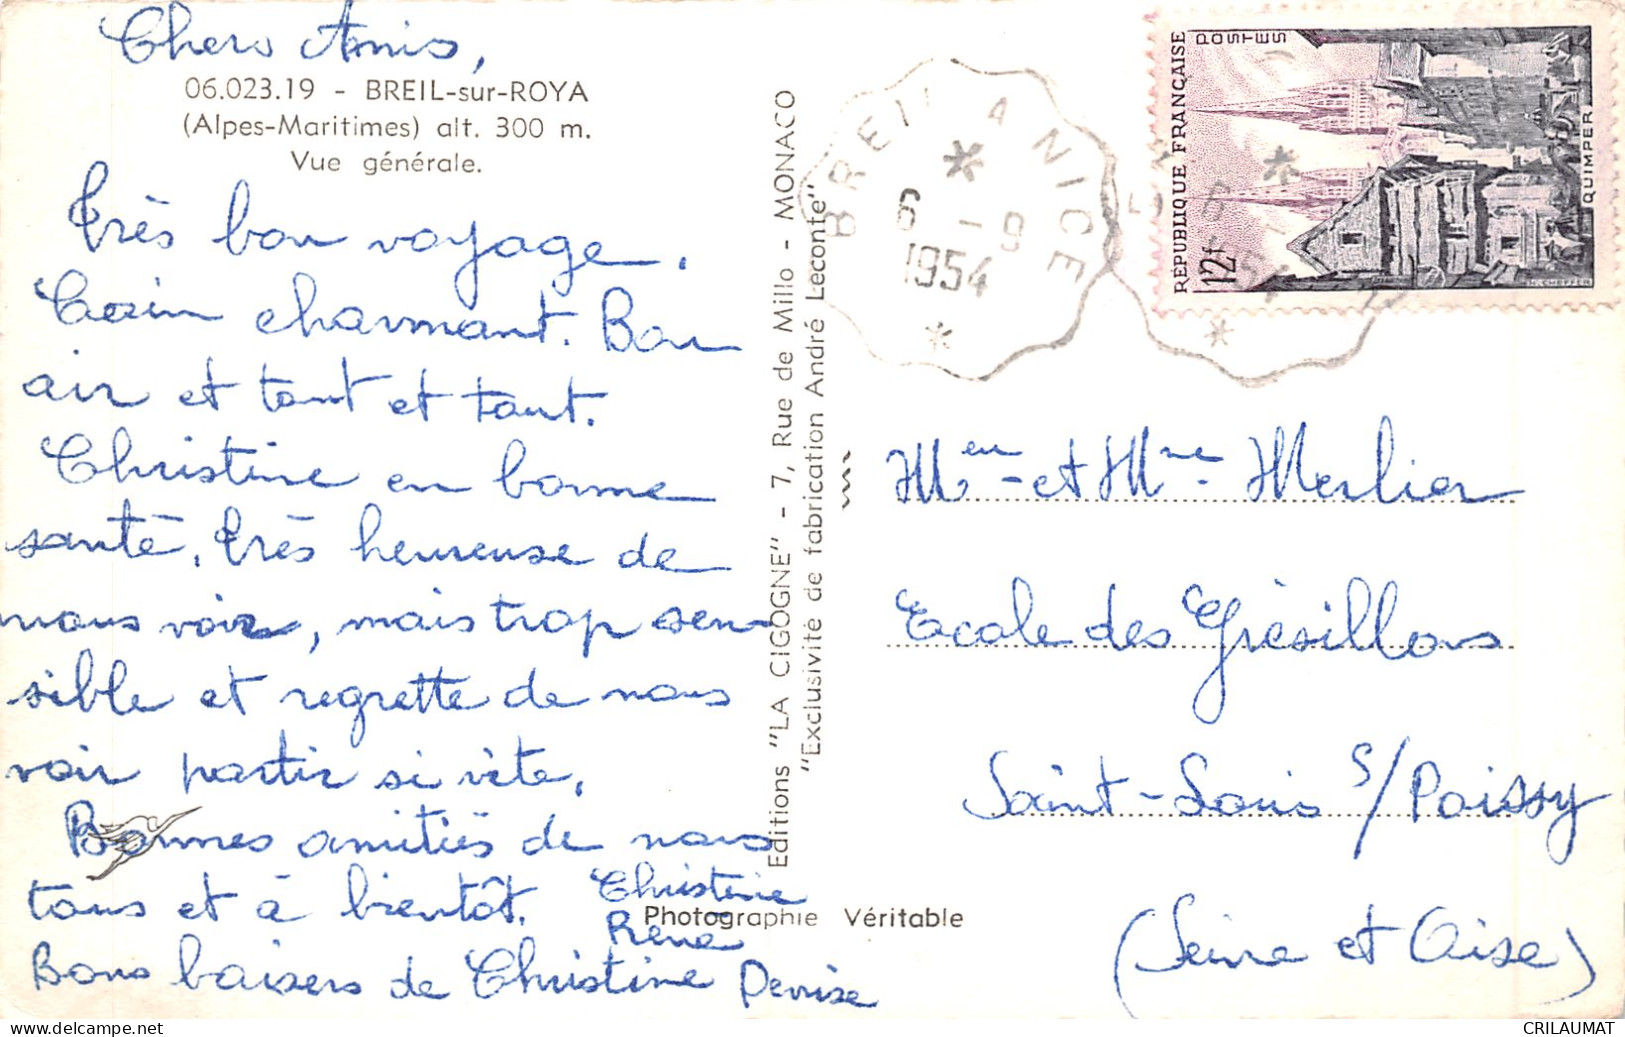 Chers Amis,
06.023.19 - BREIL-sur-ROYA
(Alpes-Maritimes) alt. 300 m.
Vue générale.
Très bon voyage.
Coin charmant. Bon
air et tout et tout.
Christine en bonne
santé. Très heureuse de
nous voir, mais trop sen-
sible et regrette de nous
voir partir si vite.
Bonnes amitiés de nous
tous et à bientôt. Christine
René
Bons baisers de Christine Denise
Editions "LA CIGOGNE" - 7, Rue de Millo - MONACO
"Exclusivité de fabrication André Leconte"
Photographie Véritable
BREIL A NICE
6 - 9
1954
RÉPUBLIQUE FRANÇAISE
POSTES
12f
QUIMPER
Meur et Mme Merlier
Ecole des Grésillons
Saint-Louis s/Poissy
(Seine et Oise)
CRILAUMAT